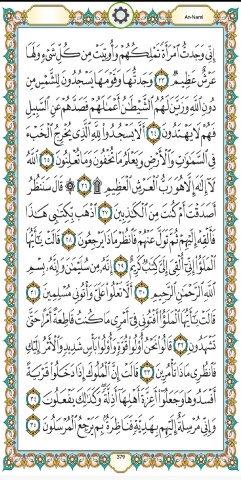 An-Naml
إِنِّى وَجَدتُّ ٱمْرَأَةً تَمْلِكُهُمْ وَأُوتِيَتْ مِن كُلِّ شَىْءٍ وَلَهَا
عَرْشٌ عَظِيمٌ ٢٣ وَجَدتُّهَا وَقَوْمَهَا يَسْجُدُونَ لِلشَّمْسِ مِن
دُونِ ٱللَّهِ وَزَيَّنَ لَهُمُ ٱلشَّيْطَٰنُ أَعْمَٰلَهُمْ فَصَدَّهُمْ عَنِ ٱلسَّبِيلِ
فَهُمْ لَا يَهْتَدُونَ ٢٤ أَلَّا يَسْجُدُوا۟ لِلَّهِ ٱلَّذِى يُخْرِجُ ٱلْخَبْءَ
فِى ٱلسَّمَٰوَٰتِ وَٱلْأَرْضِ وَيَعْلَمُ مَا تُخْفُونَ وَمَا تُعْلِنُونَ ٢٥ ٱللَّهُ
لَآ إِلَٰهَ إِلَّا هُوَ رَبُّ ٱلْعَرْشِ ٱلْعَظِيمِ ۩ ٢٦ ۞ قَالَ سَنَنظُرُ
أَصَدَقْتَ أَمْ كُنتَ مِنَ ٱلْكَٰذِبِينَ ٢٧ ٱذْهَب بِّكِتَٰبِى هَٰذَا
فَأَلْقِهْ إِلَيْهِمْ ثُمَّ تَوَلَّ عَنْهُمْ فَٱنظُرْ مَاذَا يَرْجِعُونَ ٢٨ قَالَتْ يَٰٓأَيُّهَا
ٱلْمَلَؤُا۟ إِنِّىٓ أُلْقِىَ إِلَىَّ كِتَٰبٌ كَرِيمٌ ٢٩ إِنَّهُۥ مِن سُلَيْمَٰنَ وَإِنَّهُۥ بِسْمِ
ٱللَّهِ ٱلرَّحْمَٰنِ ٱلرَّحِيمِ ٣٠ أَلَّا تَعْلُوا۟ عَلَىَّ وَأْتُونِى مُسْلِمِينَ ٣١
قَالَتْ يَٰٓأَيُّهَا ٱلْمَلَؤُا۟ أَفْتُونِى فِىٓ أَمْرِى مَا كُنتُ قَاطِعَةً أَمْرًا حَتَّىٰ
تَشْهَدُونِ ٣٢ قَالُوا۟ نَحْنُ أُو۟لُوا۟ قُوَّةٍ وَأُو۟لُوا۟ بَأْسٍ شَدِيدٍ وَٱلْأَمْرُ إِلَيْكِ
فَٱنظُرِى مَاذَا تَأْمُرِينَ ٣٣ قَالَتْ إِنَّ ٱلْمُلُوكَ إِذَا دَخَلُوا۟ قَرْيَةً
أَفْسَدُوهَا وَجَعَلُوٓا۟ أَعِزَّةَ أَهْلِهَآ أَذِلَّةً وَكَذَٰلِكَ يَفْعَلُونَ ٣٤
وَإِنِّى مُرْسِلَةٌ إِلَيْهِم بِهَدِيَّةٍ فَنَاظِرَةٌۢ بِمَ يَرْجِعُ ٱلْمُرْسَلُونَ ٣٥
379